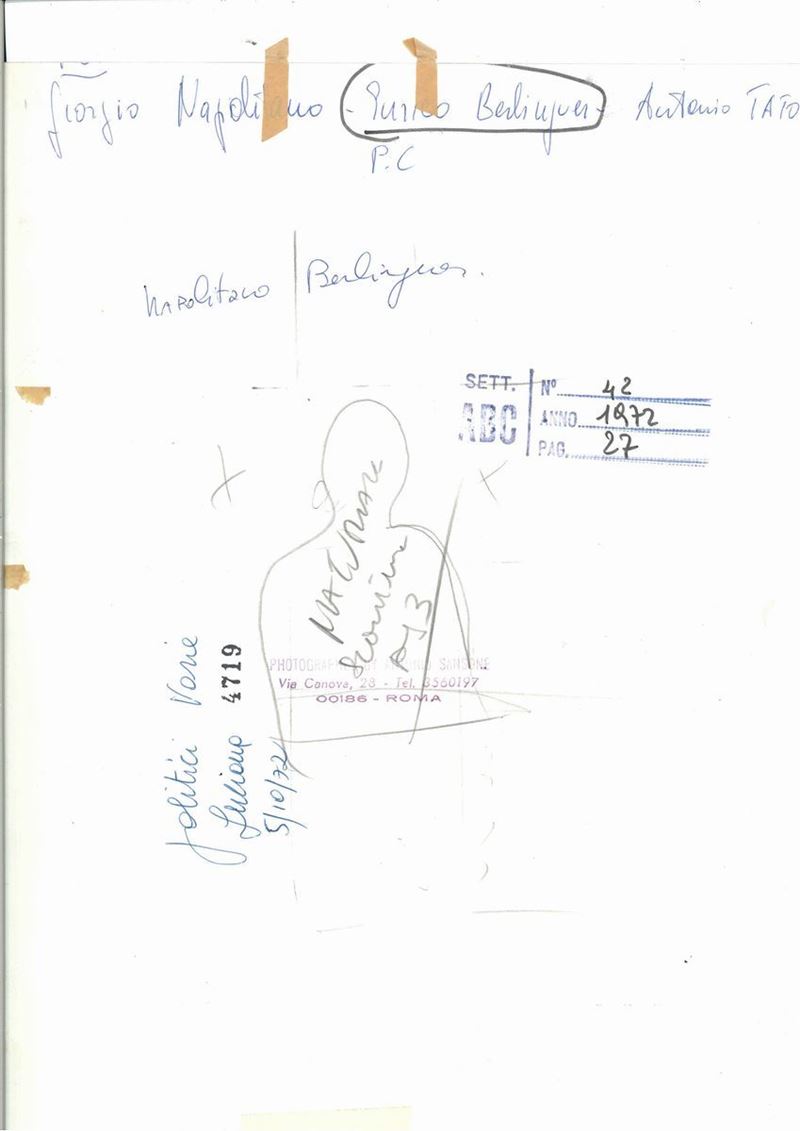 Giorgio Napolitano - Enrico Berlinguer - Antonio TATO
P.C
NAPolitano Berlinguer.
SETT. ABC
N° 42
ANNO 1972
PAG. 27
PHOTOGRAPHED BY ANTONIO SANSONE
Via Canova, 28 - Tel. 3560197
00186 - ROMA
politici Varie
4719
5/10/72